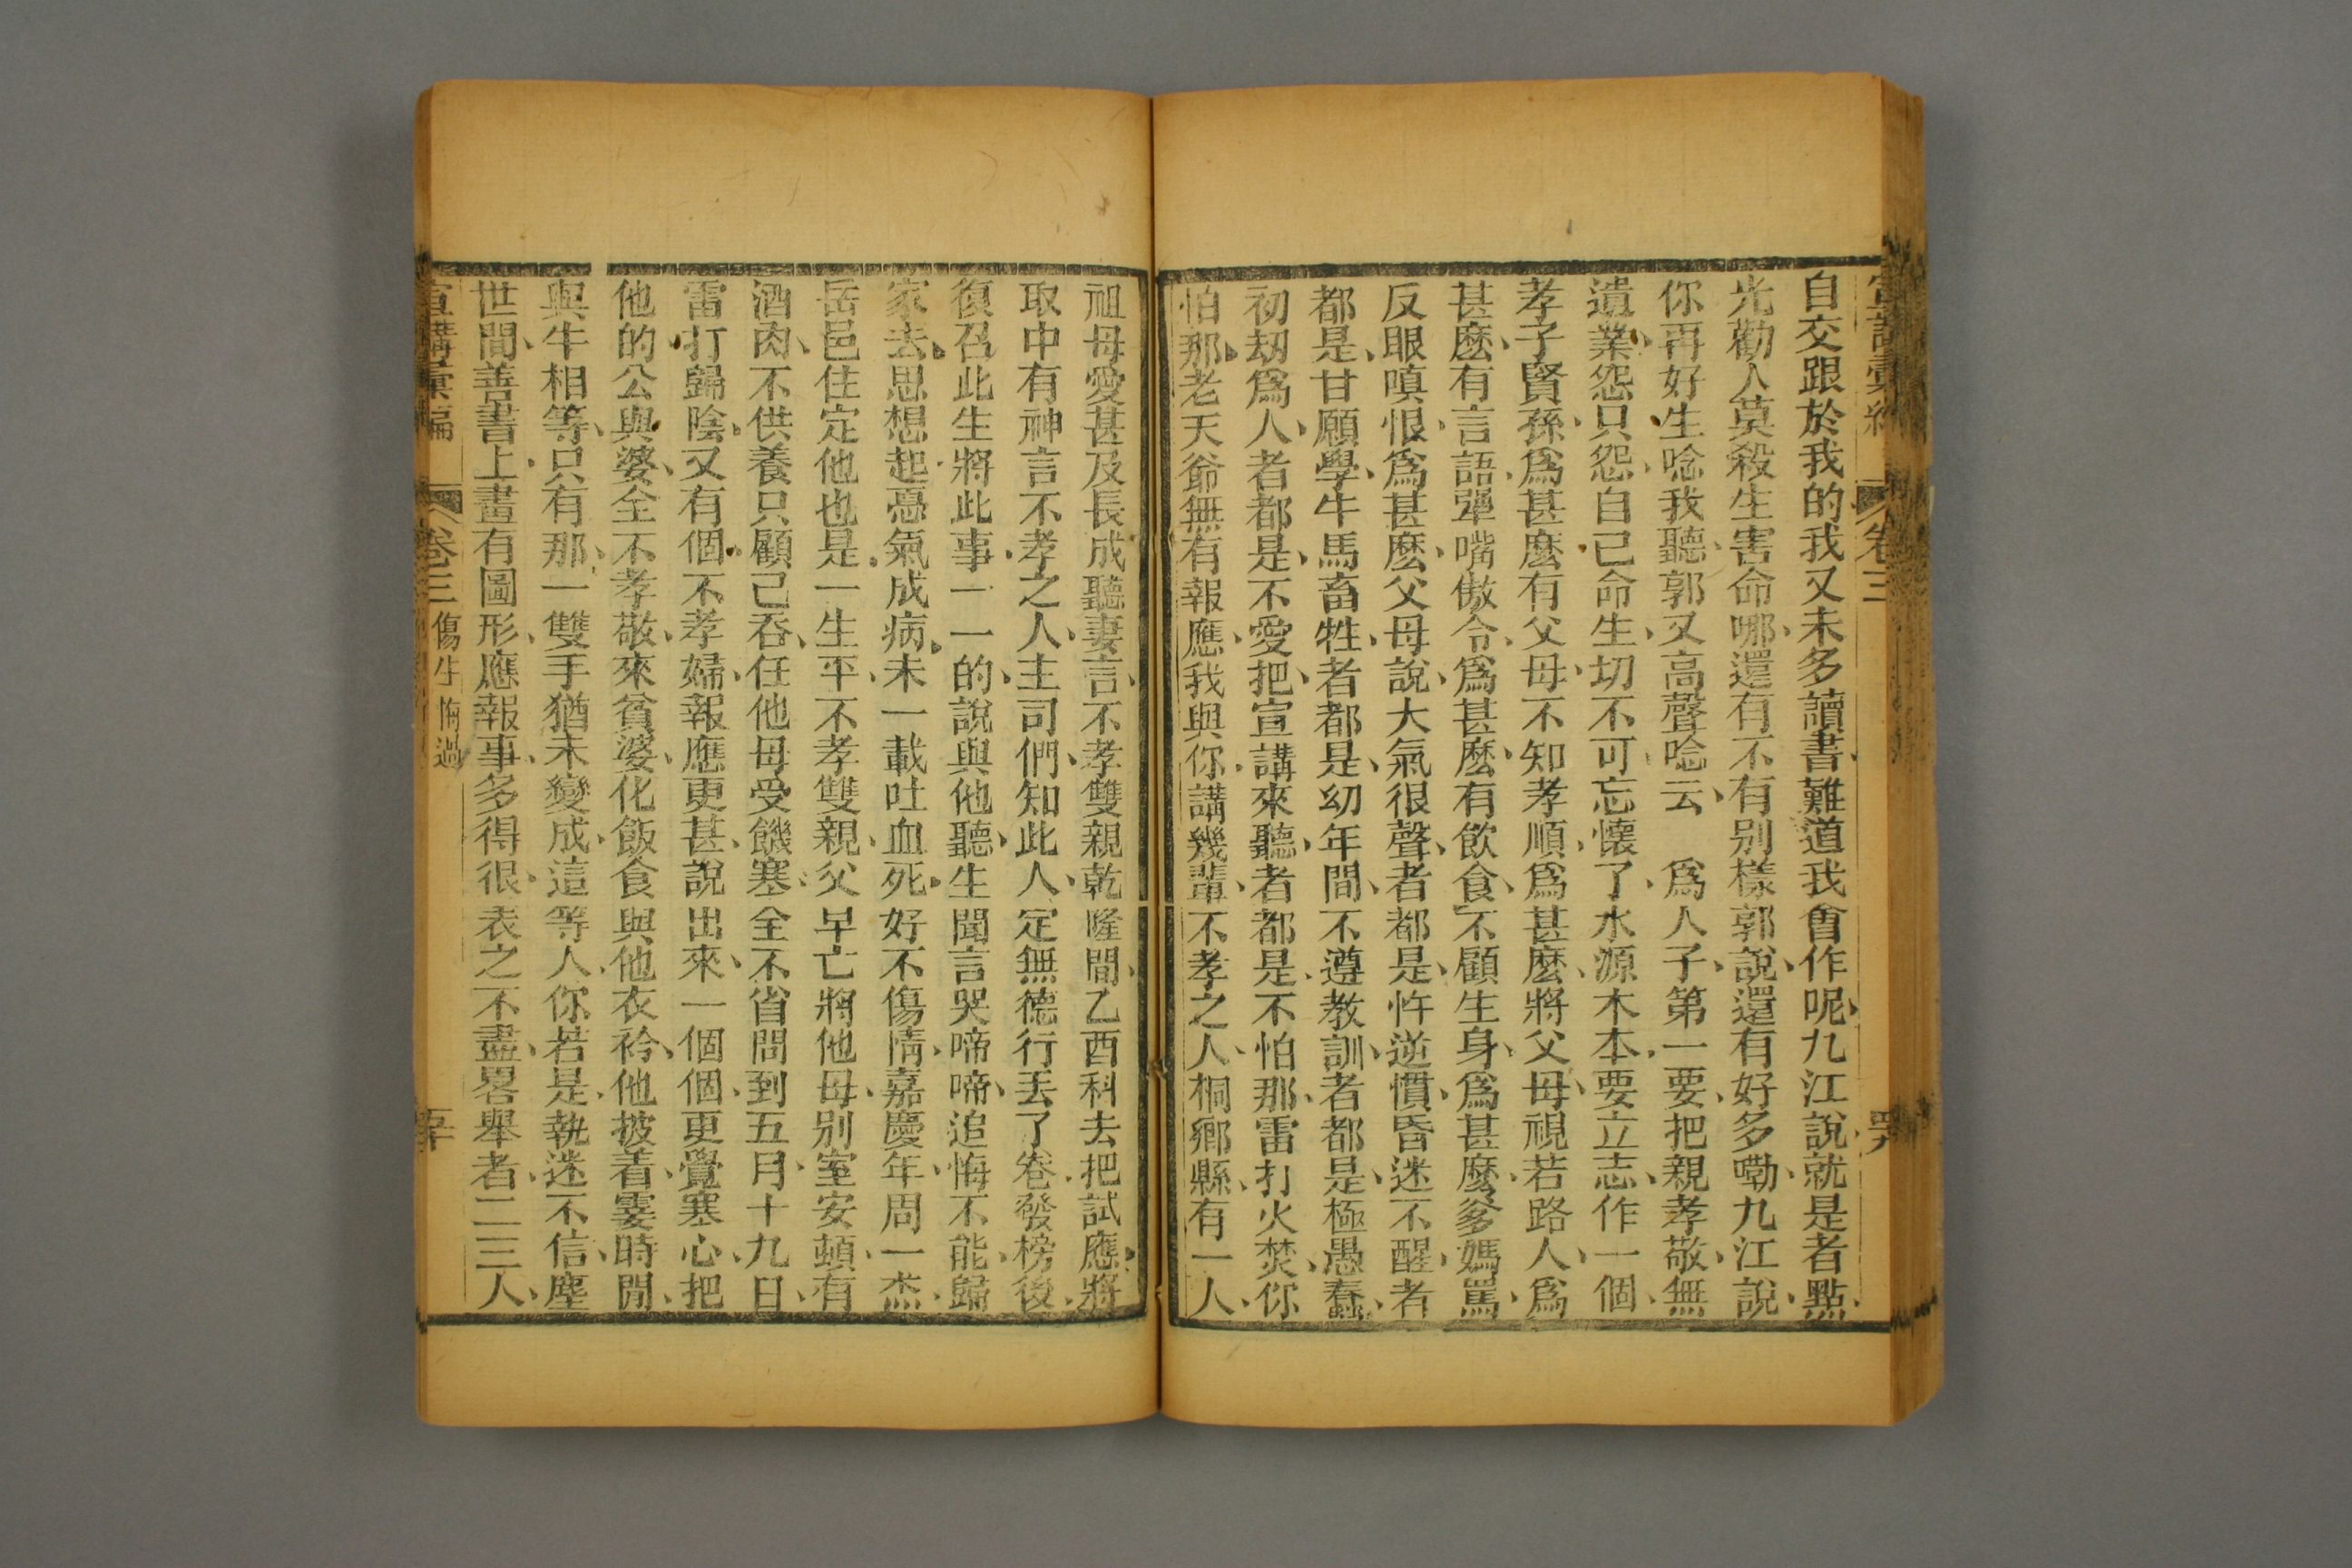 宣講彙編 卷三
自交跟於我的我又未多讀書難道我會作呢九江說就是者點
光勸人莫殺生害命哪還有不有别樣郭說還有好多嘞九江說
你再好生唸我聽郭又高聲唸云 爲人子第一要把親孝敬無
遺業怨只怨自己命生切不可忘懷了水源木本要立志作一個
孝子賢孫爲甚麽有父母不知孝順爲甚麽將父母視若路人爲
甚麽有言語犟嘴傲令爲甚麽有飲食不顧生身爲甚麽爹媽罵
反眼嗔恨爲甚麽父母說大氣很聲者都是忤逆慣昏迷不醒者
都是甘願學牛馬畜牲者都是幼年間不遵教訓者都是極愚蠢
初刼爲人者都是不愛把宣講來聽者都是不怕那雷打火焚你
怕那老天爺無有報應我與你講幾輩不孝之人桐鄉縣有一人
祖母愛甚及長成聽妻言不孝雙親乾隆間乙酉科去把試應將
取中有神言不孝之人主司們知此人定無德行丟了卷發榜後
復召此生將此事一一的說與他聽生聞言哭啼啼追悔不能歸
家去思想起慪氣成病未一載吐血死好不傷情嘉慶年周一杰
岳邑住定他也是一生平不孝雙親父早亡將他母别室安頓有
酒肉不供養只顧己吞任他母受饑寒全不省問到五月十九日
雷打歸陰又有個不孝婦報應更甚說出來一個個更覺寒心把
他的公與婆全不孝敬來貧婆化飯食與他衣衿他披着霎時間
與牛相等只有那一雙手猶未變成這等人你若是執迷不信塵
世間善書上畫有圖形應報事多得很表之不盡畧舉者二三人
宣講彙編 卷三 傷生悔過 五十